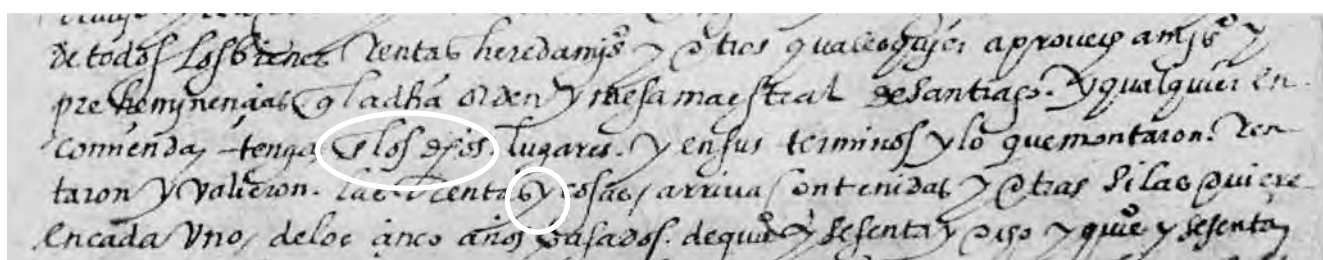 de todos los bienes Rentas heredamjos y otros qualesqujer aprouechamjos y
preheminençias q la dha orden y mesa maestral de santiago. y qualquier en
comienda, tenga e los dhos lugares. y en sus terminos y lo que montaron. Ren
taron y valieron. las Rentas y cosas, arriua contenidas y otras si las ouiere
en cada vno, de los çinco años pasados. de qujos y sesenta y ocho y qujos y sesenta y